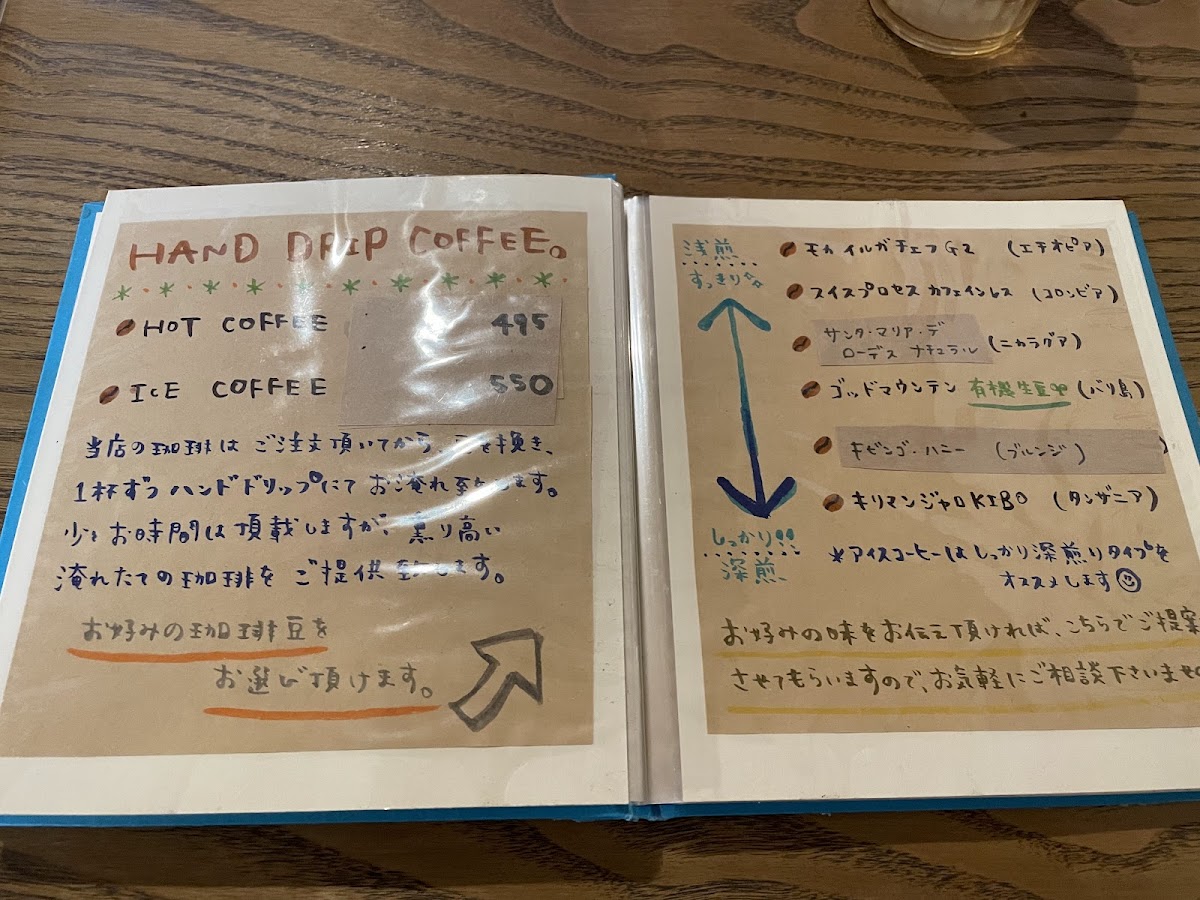 HAND DRIP COFFEE。
HOT COFFEE 495
ICE COFFEE 550
当店の珈琲は ご注文頂いてから、豆を挽き、
1杯ずつ ハンドドリップにて お淹れ致します。
少々お時間は頂載しますが、薫り高い
淹れたての珈琲を ご提供致します。
お好みの珈琲豆を
お選び頂けます。
浅煎
すっきり
モカ イルガチェフG2 (エチオピア)
スイスプロセス カフェインレス (コロンビア)
サンタ・マリア・デ
ローデス ナチュラル (ニカラグア)
ゴッドマウンテン 有機生豆 (バリ島)
キビンゴ・ハニー (ブルンジ)
キリマンジャロ KIBO (タンザニア)
しっかり!!
深煎
*アイスコーヒーは しっかり深煎りタイプを
オススメします
お好みの味をお伝え頂ければ、こちらでご提案
させてもらいますので、お気軽にご相談下さいませ